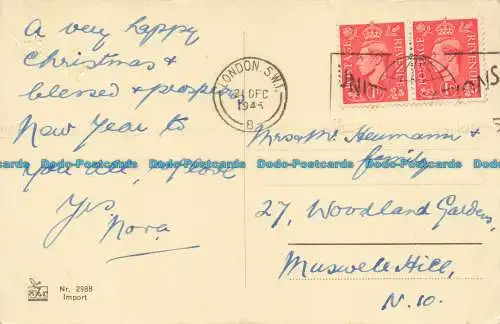 A very happy
Christmas &
blessed & prosperous
New Year to
you all, & love
Yrs
Nora.
Nr. 2988
Import
LONDON S.W.1.
21 DEC
194
8
POSTAGE REVENUE
POSTAGE REVENUE
UNI IONS
Mrs & Mr. Heumann &
family
27, Woodland Gardens,
Muswell Hill,
N. 10.
Dodo-Postcards Dodo-Postcards Dodo-Postcards Dodo-Postcards Dodo-Postcards